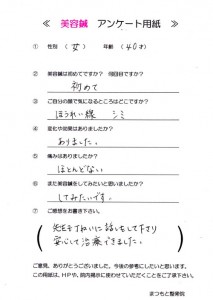 ≪ 美容鍼 アンケート用紙 ≫
① 性別 （ 女 ） 年齢 （ 40才 ）
② 美容鍼は初めてですか？ 何回目ですか？
初めて
③ ご自分の顔で気になるところはどこですか？
ほうれい線 シミ
④ 変化や効果はありましたか？
ありました。
⑤ 痛みはありましたか？
ほとんどない
⑥ また美容鍼をしてみたいと思いましたか？
してみたいです。
⑦ ご感想をお書き下さい。
先生もていねいに話しをして下さり
安心して治療できました。
ご意見、ありがとうございました。今後の参考にしたいと思います。
この用紙は、ＨＰや、院内掲示に使わせていただくことをご了承下さい。
まつもと整骨院